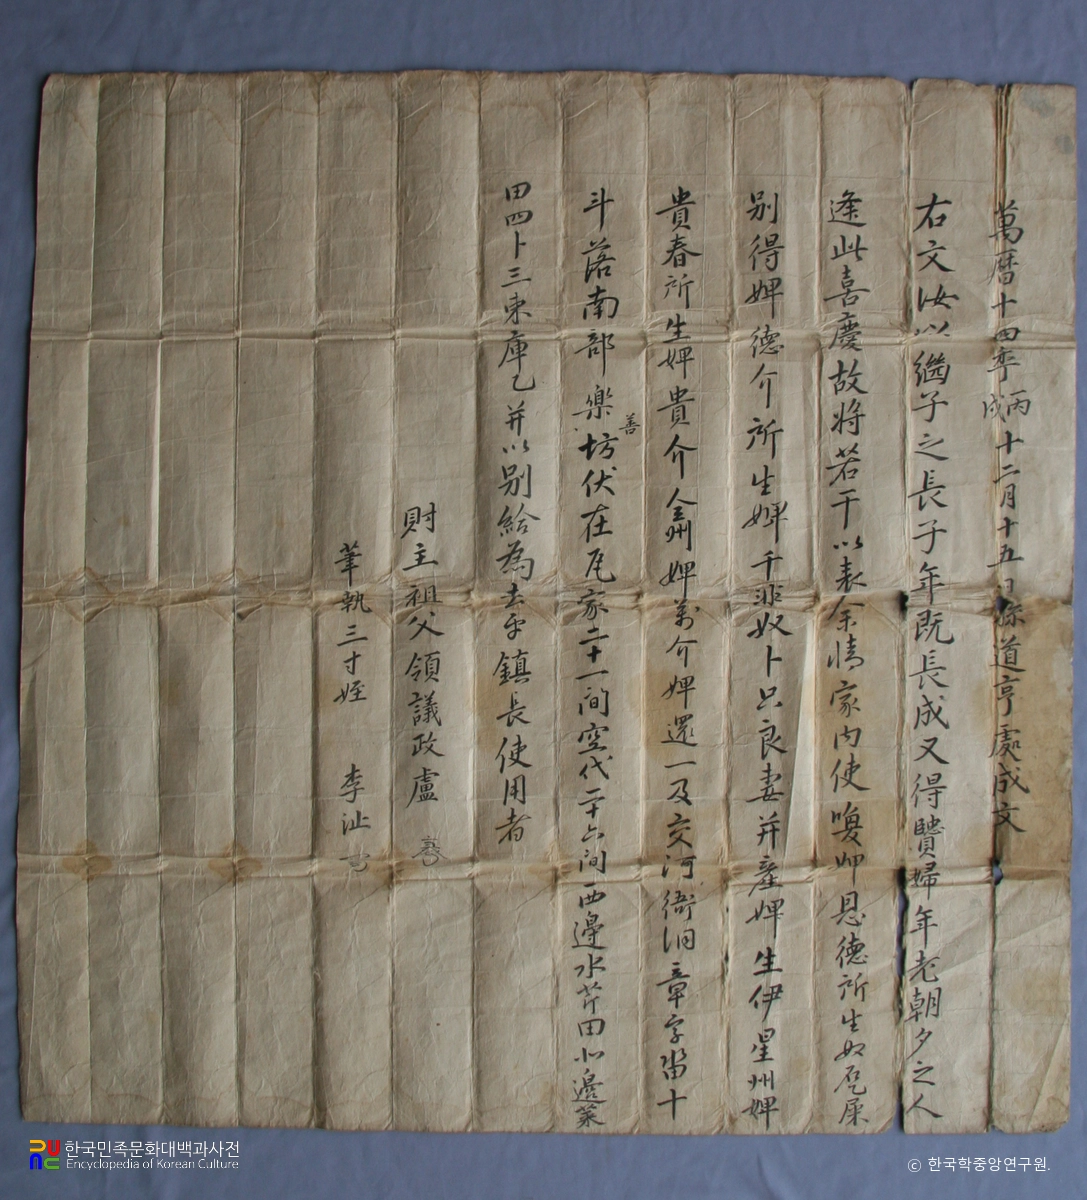 萬曆十四年丙戌十二月十五日孫道亨處成文
右文汝以繼子之長子年旣長成又得贒婦年老朝夕之人
逢此喜慶故將若干以表余情家內使喚婢恩德所生奴石屎
別得婢德介所生婢千非奴卜只良妻并産婢生伊星州婢
貴春所生婢貴介全州婢萬介婢還一及交河衙洞章字畓十
斗落南部樂善坊伏在瓦家二十一間空代二十六間西邊水芹田北邊菜
田四卜三束庫乙并以別給爲去乎鎭長使用者
財主祖父領議政盧
筆執三寸姪 李沚
한국민족문화대백과사전
Encyclopedia of Korean Culture
ⓒ 한국학중앙연구원.